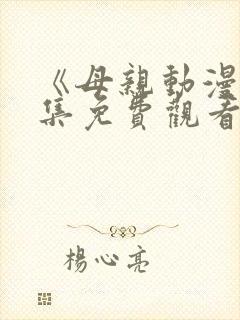 《母親動漫
集免費觀看
楊心亮